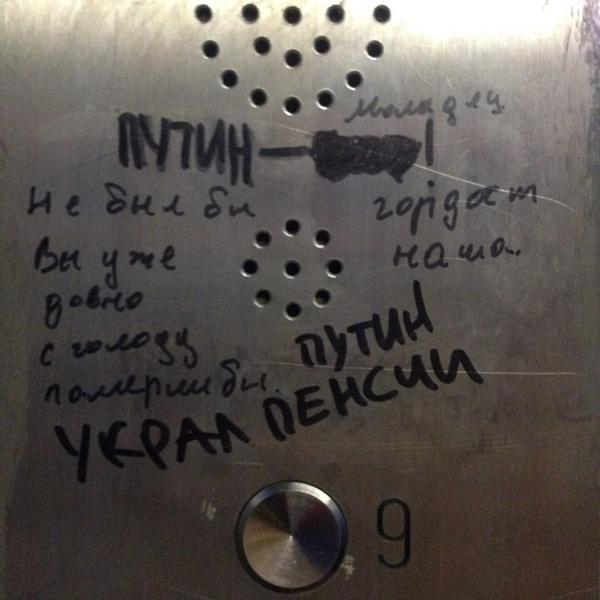 Молодец
ПУТИН —
Не был бы
гордост
Вы уже
наша.
давно
с голоду
померли бы.
ПУТИН
УКРАЛ ПЕНСИИ
9